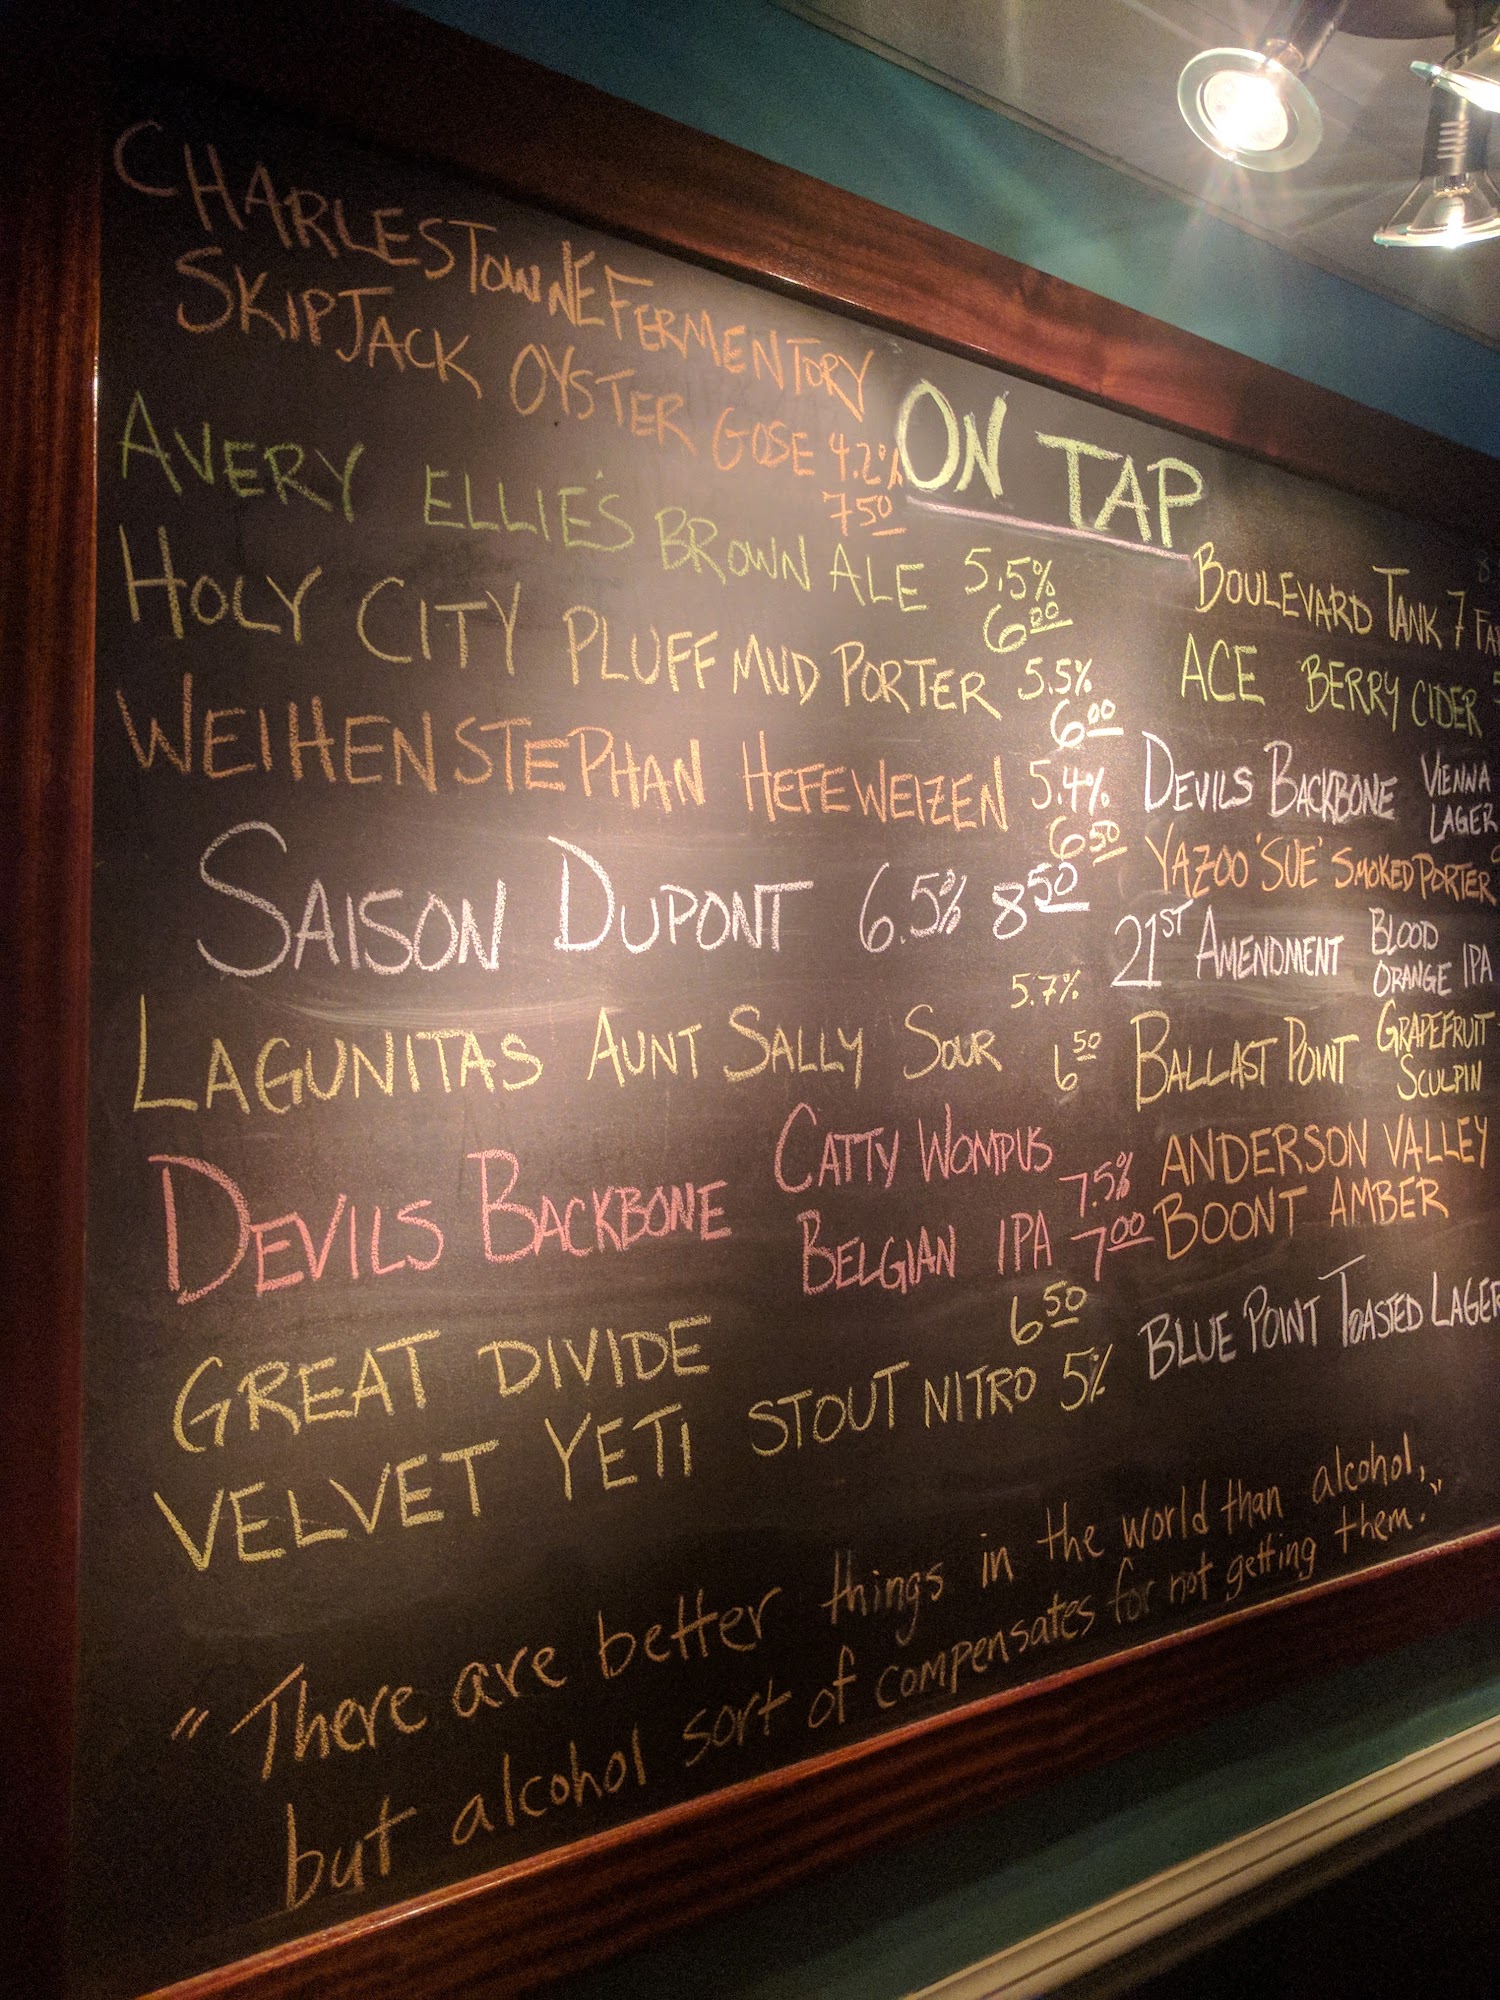 ON TAP
CHARLESTOWNE FERMENTORY
SKIPJACK OYSTER GOSE 4.2%
7 50
AVERY ELLIE'S BROWN ALE 5.5%
6 00
HOLY CITY PLUFF MUD PORTER 5.5%
6 00
WEIHENSTEPHAN HEFEWEIZEN 5.4%
6 50
SAISON DUPONT 6.5% 8 50
5.7%
LAGUNITAS AUNT SALLY SOUR 6 50
CATTY WOMPUS 7.5%
DEVILS BACKBONE
BELGIAN IPA 7 00
GREAT DIVIDE 6 50
VELVET YETI STOUT NITRO 5%
BOULEVARD TANK 7
ACE BERRY CIDER
DEVILS BACKBONE VIENNA
LAGER
YAZOO 'SUE' SMOKED PORTER
21ST AMENDMENT BLOOD
ORANGE IPA
BALLAST POINT GRAPEFRUIT
SCULPIN
ANDERSON VALLEY
BOONT AMBER
BLUE POINT TOASTED LAGER
"There are better things in the world than alcohol,
but alcohol sort of compensates for not getting them."